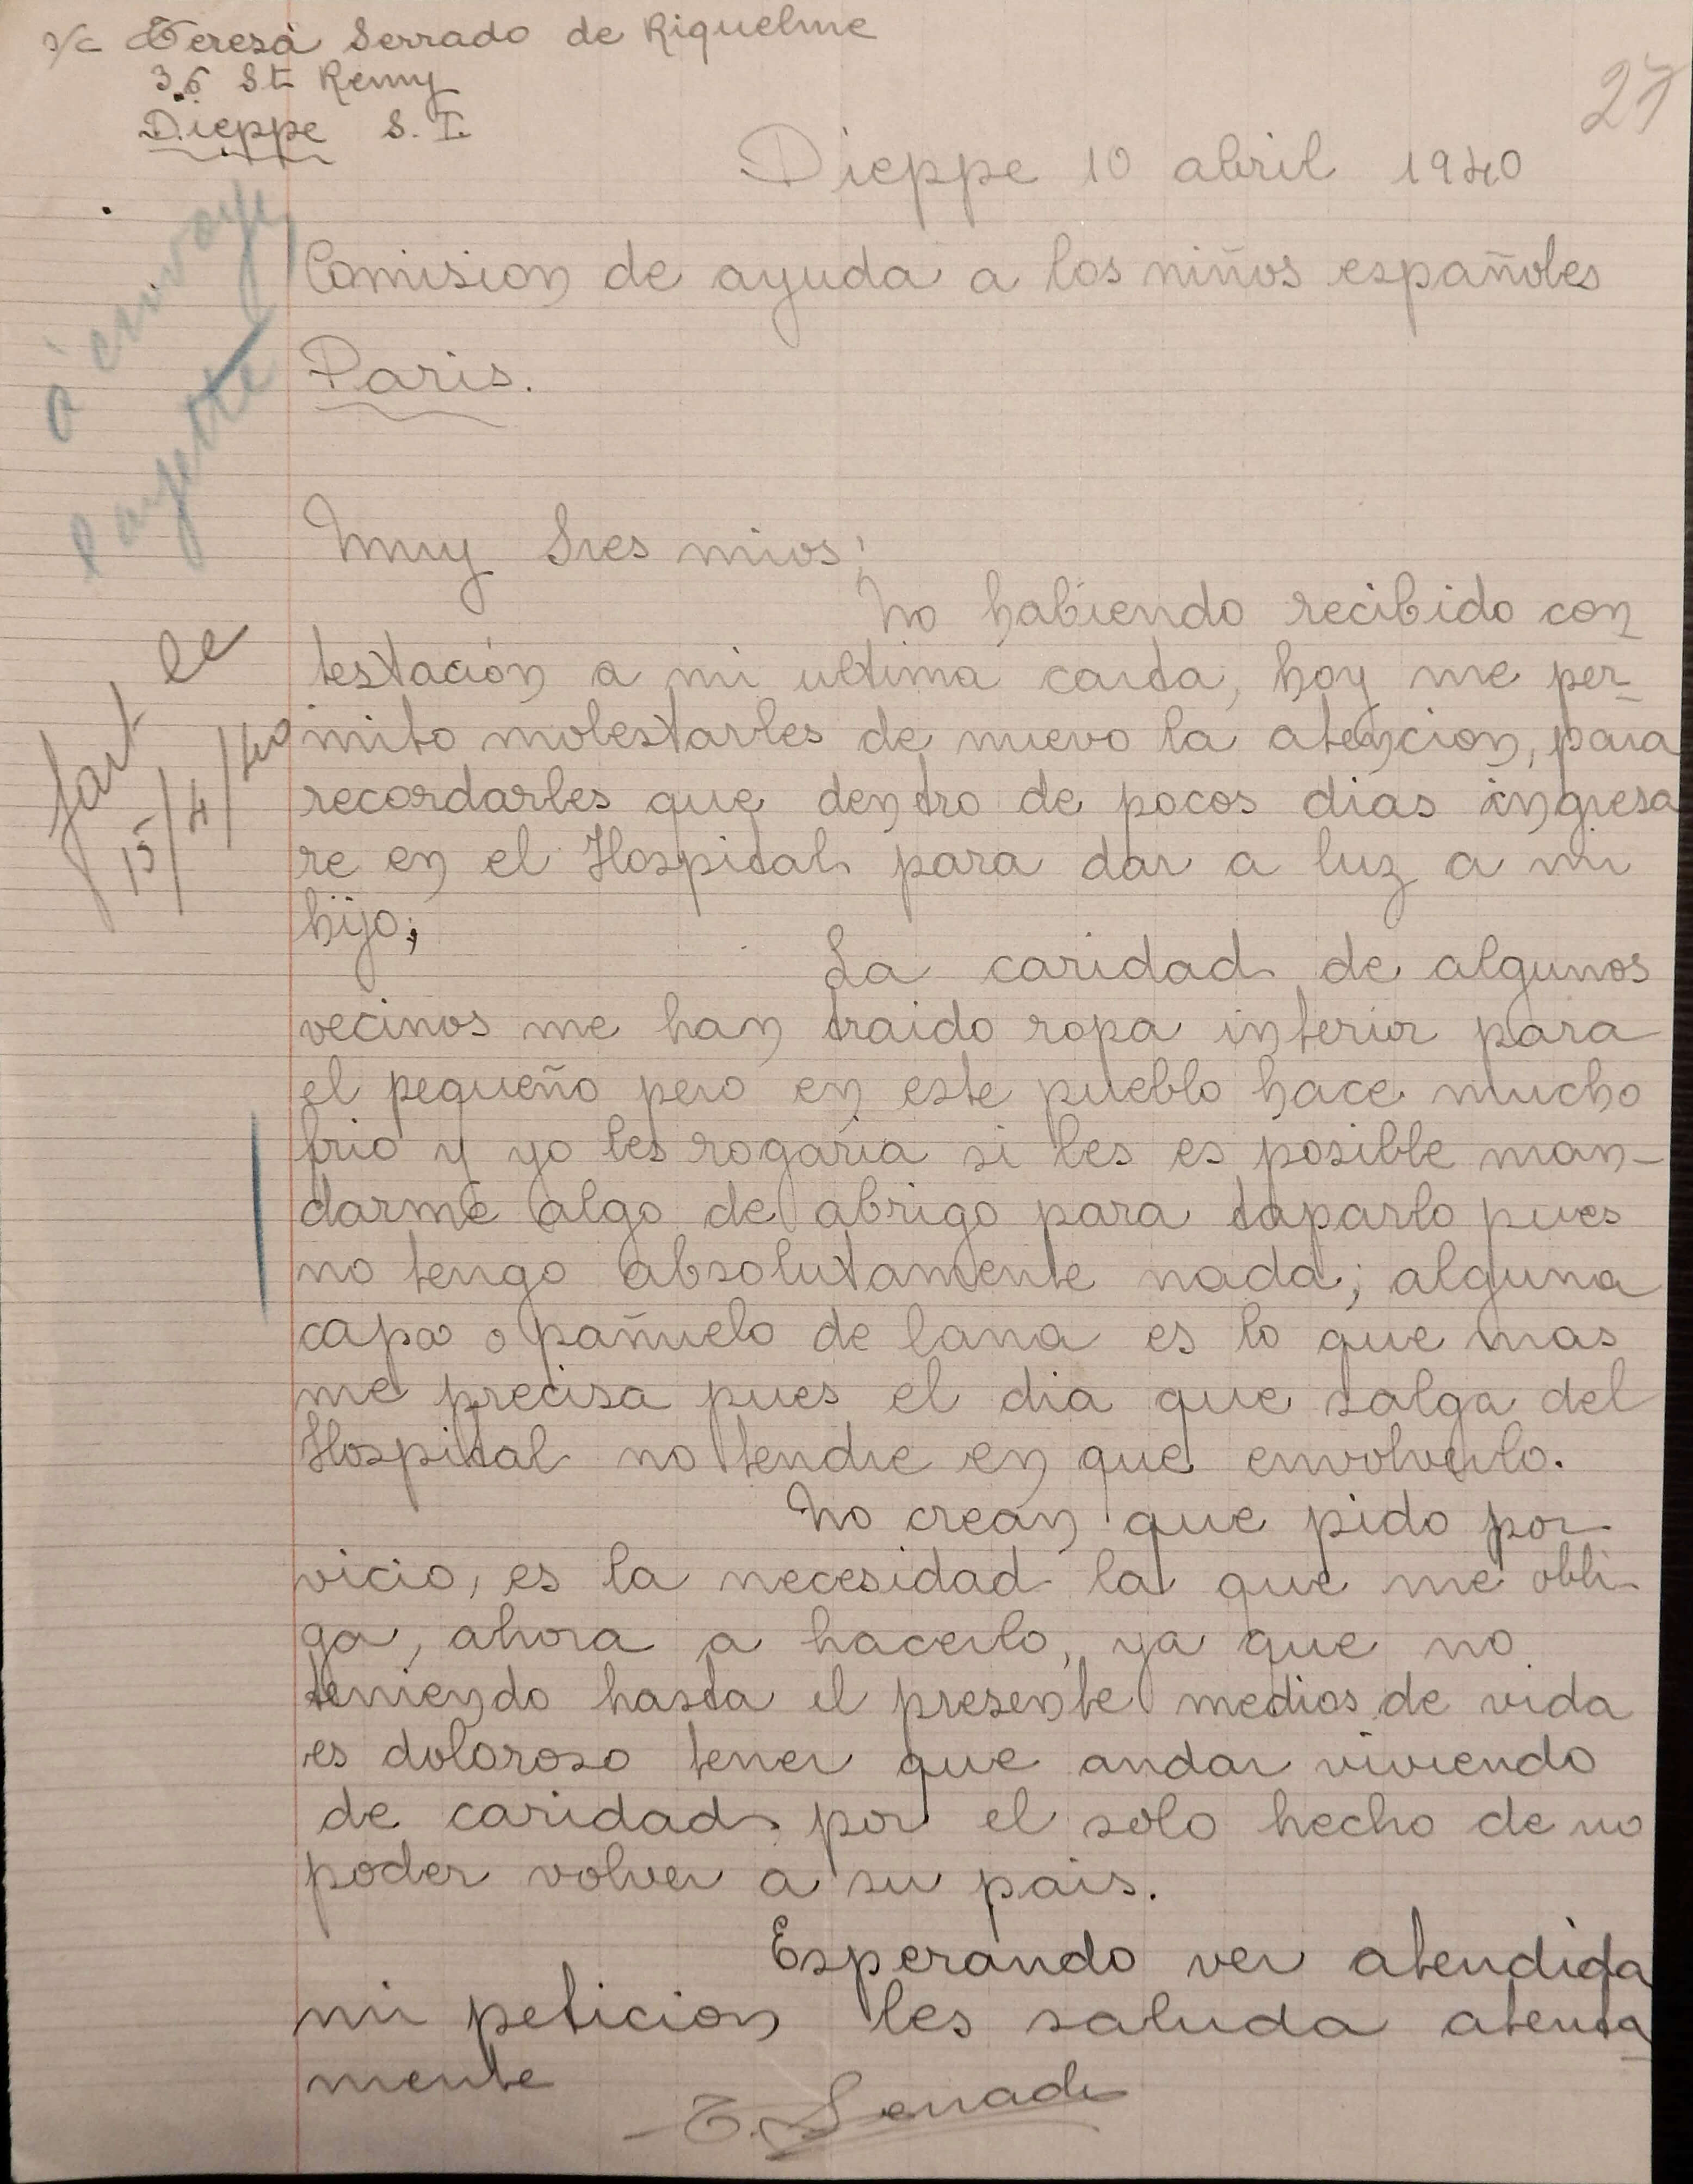 s/c Teresa Serrado de Riquelme
36 St Remy
Dieppe S. I.
27
Dieppe 10 abril 1940
Comision de ayuda a los niños españoles
Paris.
à envoyé
layette
fait le
15/4/40
Muy Sres mios:
No habiendo recibido con
testación a mi ultima carta, hoy me per-
mito molestarles de nuevo la atencion, para
recordarles que dentro de pocos dias ingresa
re en el Hospital para dar a luz a mi
hijo;
La caridad de algunos
vecinos me han traido ropa interior para
el pequeño pero en este pueblo hace mucho
frio y yo les rogaria si les es posible man-
darme algo de abrigo para taparlo pues
no tengo absolutamente nada; alguna
capa o pañuelo de lana es lo que mas
me precisa pues el dia que salga del
Hospital no tendre en que envolverlo.
No crean que pido por
vicio, es la necesidad la que me obli-
ga, ahora a hacerlo, ya que no
teniendo hasta el presente medios de vida
es doloroso tener que andar viviendo
de caridad por el solo hecho de no
poder volver a su pais.
Esperando ver atendida
mi peticion les saluda atenta-
mente
T. Serrado